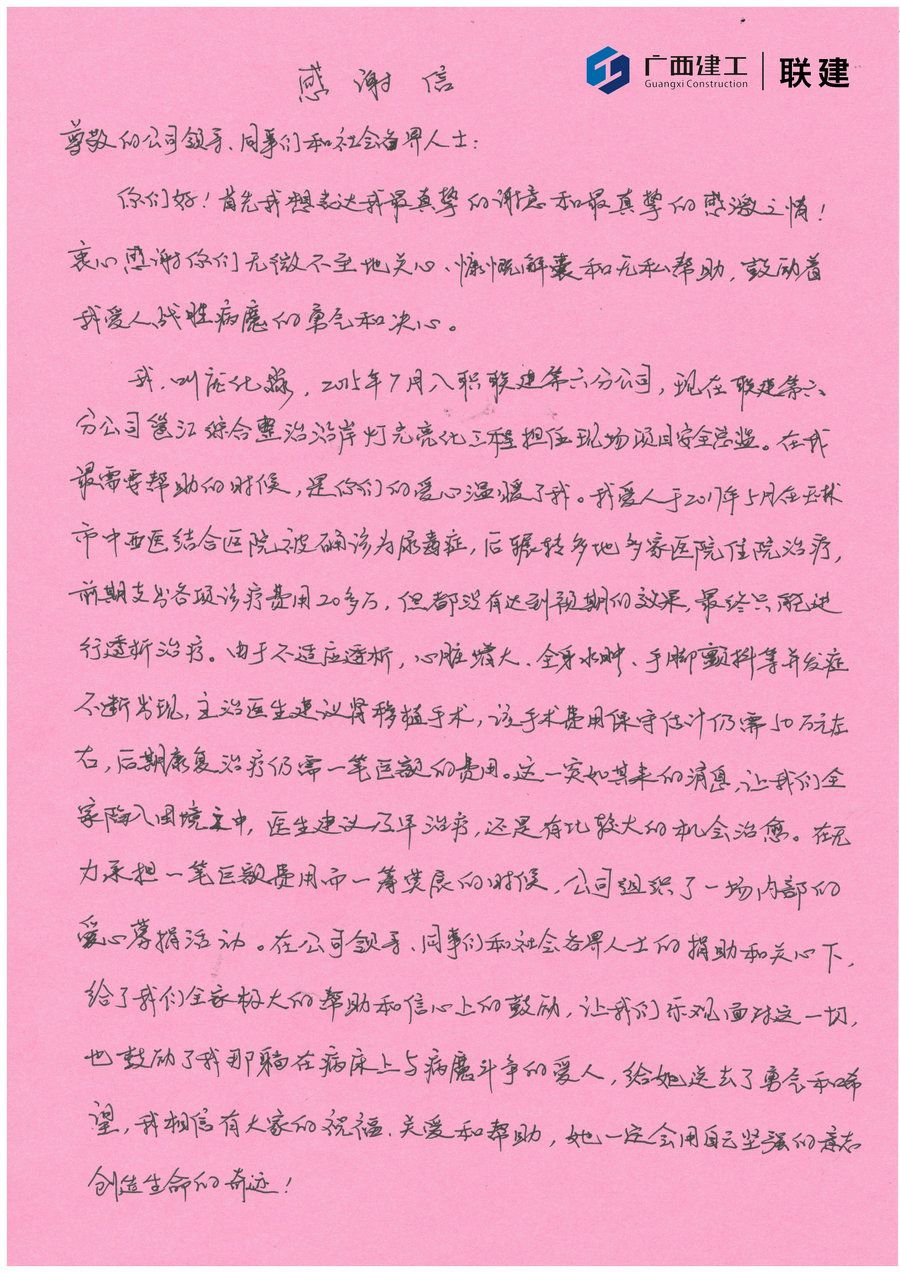 广西建工 联建
Guangxi Construction
感谢信
尊敬的公司领导、同事们和社会各界人士：
你们好！首先我想表达我最真挚的谢意和最真挚的感激之情！
衷心感谢你们无微不至地关心、慷慨解囊和无私帮助，鼓励着
我爱人战胜病魔的勇气和决心。
我叫庞化，2015年7月入职联建第六分公司，现在联建第六
分公司邕江综合整治沿岸灯光亮化工程担任现场项目安全总监。在我
最需要帮助的时候，是你们的爱心温暖了我。我爱人于2017年5月在玉林
市中西医结合医院被确诊为尿毒症，后辗转多地多家医院住院治疗，
前期支出各项诊疗费用20多万，但都没有达到预期的效果，最终只能进
行透析治疗。由于不适应透析，心脏增大、全身水肿、手脚颤抖等并发症
不断出现，主治医生建议肾移植手术，该手术费用保守估计仍需50万元左
右，后期康复治疗仍需一笔巨额的费用。这一突如其来的消息，让我们全
家陷入困境之中，医生建议及早治疗，还是有比较大的机会治愈。在无
力承担一笔巨额费用而一筹莫展的时候，公司组织了一场内部的
爱心募捐活动。在公司领导、同事们和社会各界人士的捐助和关心下，
给了我们全家极大的帮助和信心上的鼓励，让我们乐观面对这一切，
也鼓励了我那躺在病床上与病魔斗争的爱人，给她送去了勇气和希
望，我相信有大家的祝福、关爱和帮助，她一定会用自己坚强的意志
创造生命的奇迹！